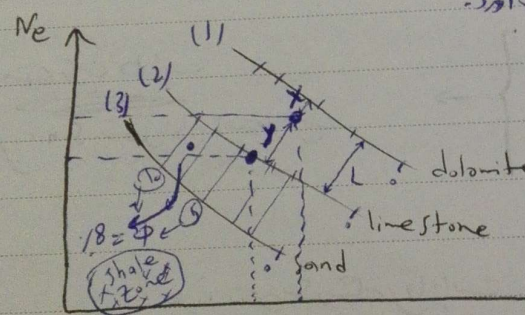 Ne
(1)
(2)
(3)
x
y
L
dolomite
limestone
18 = Φ
sand
shale
zone